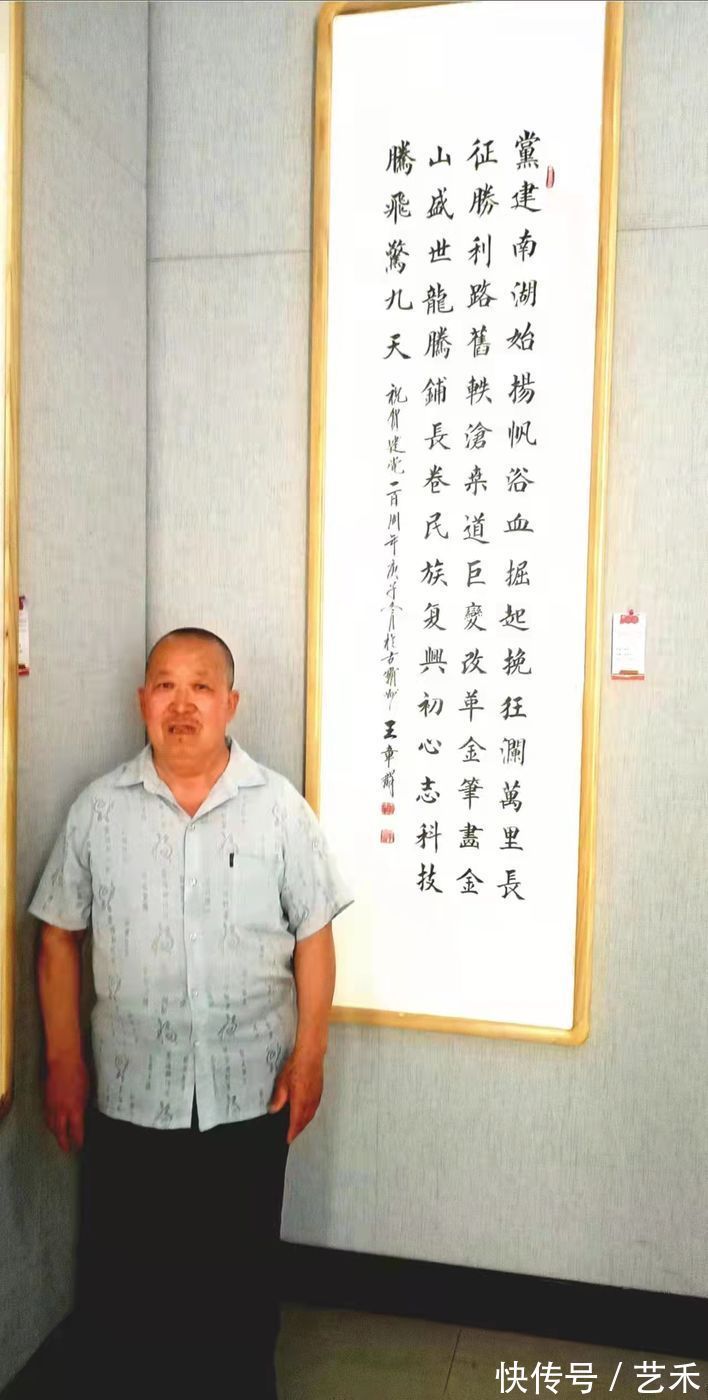 黨建南湖始揚帆浴血掘起挽狂瀾萬里長
征勝利路舊軼滄桒道巨變改革金筆畵金
山盛世龍騰鋪長卷民族复興初心志科技
騰飛驚九天
祝賀建党一百周年庚子冬月於古
王章
快传号/艺禾